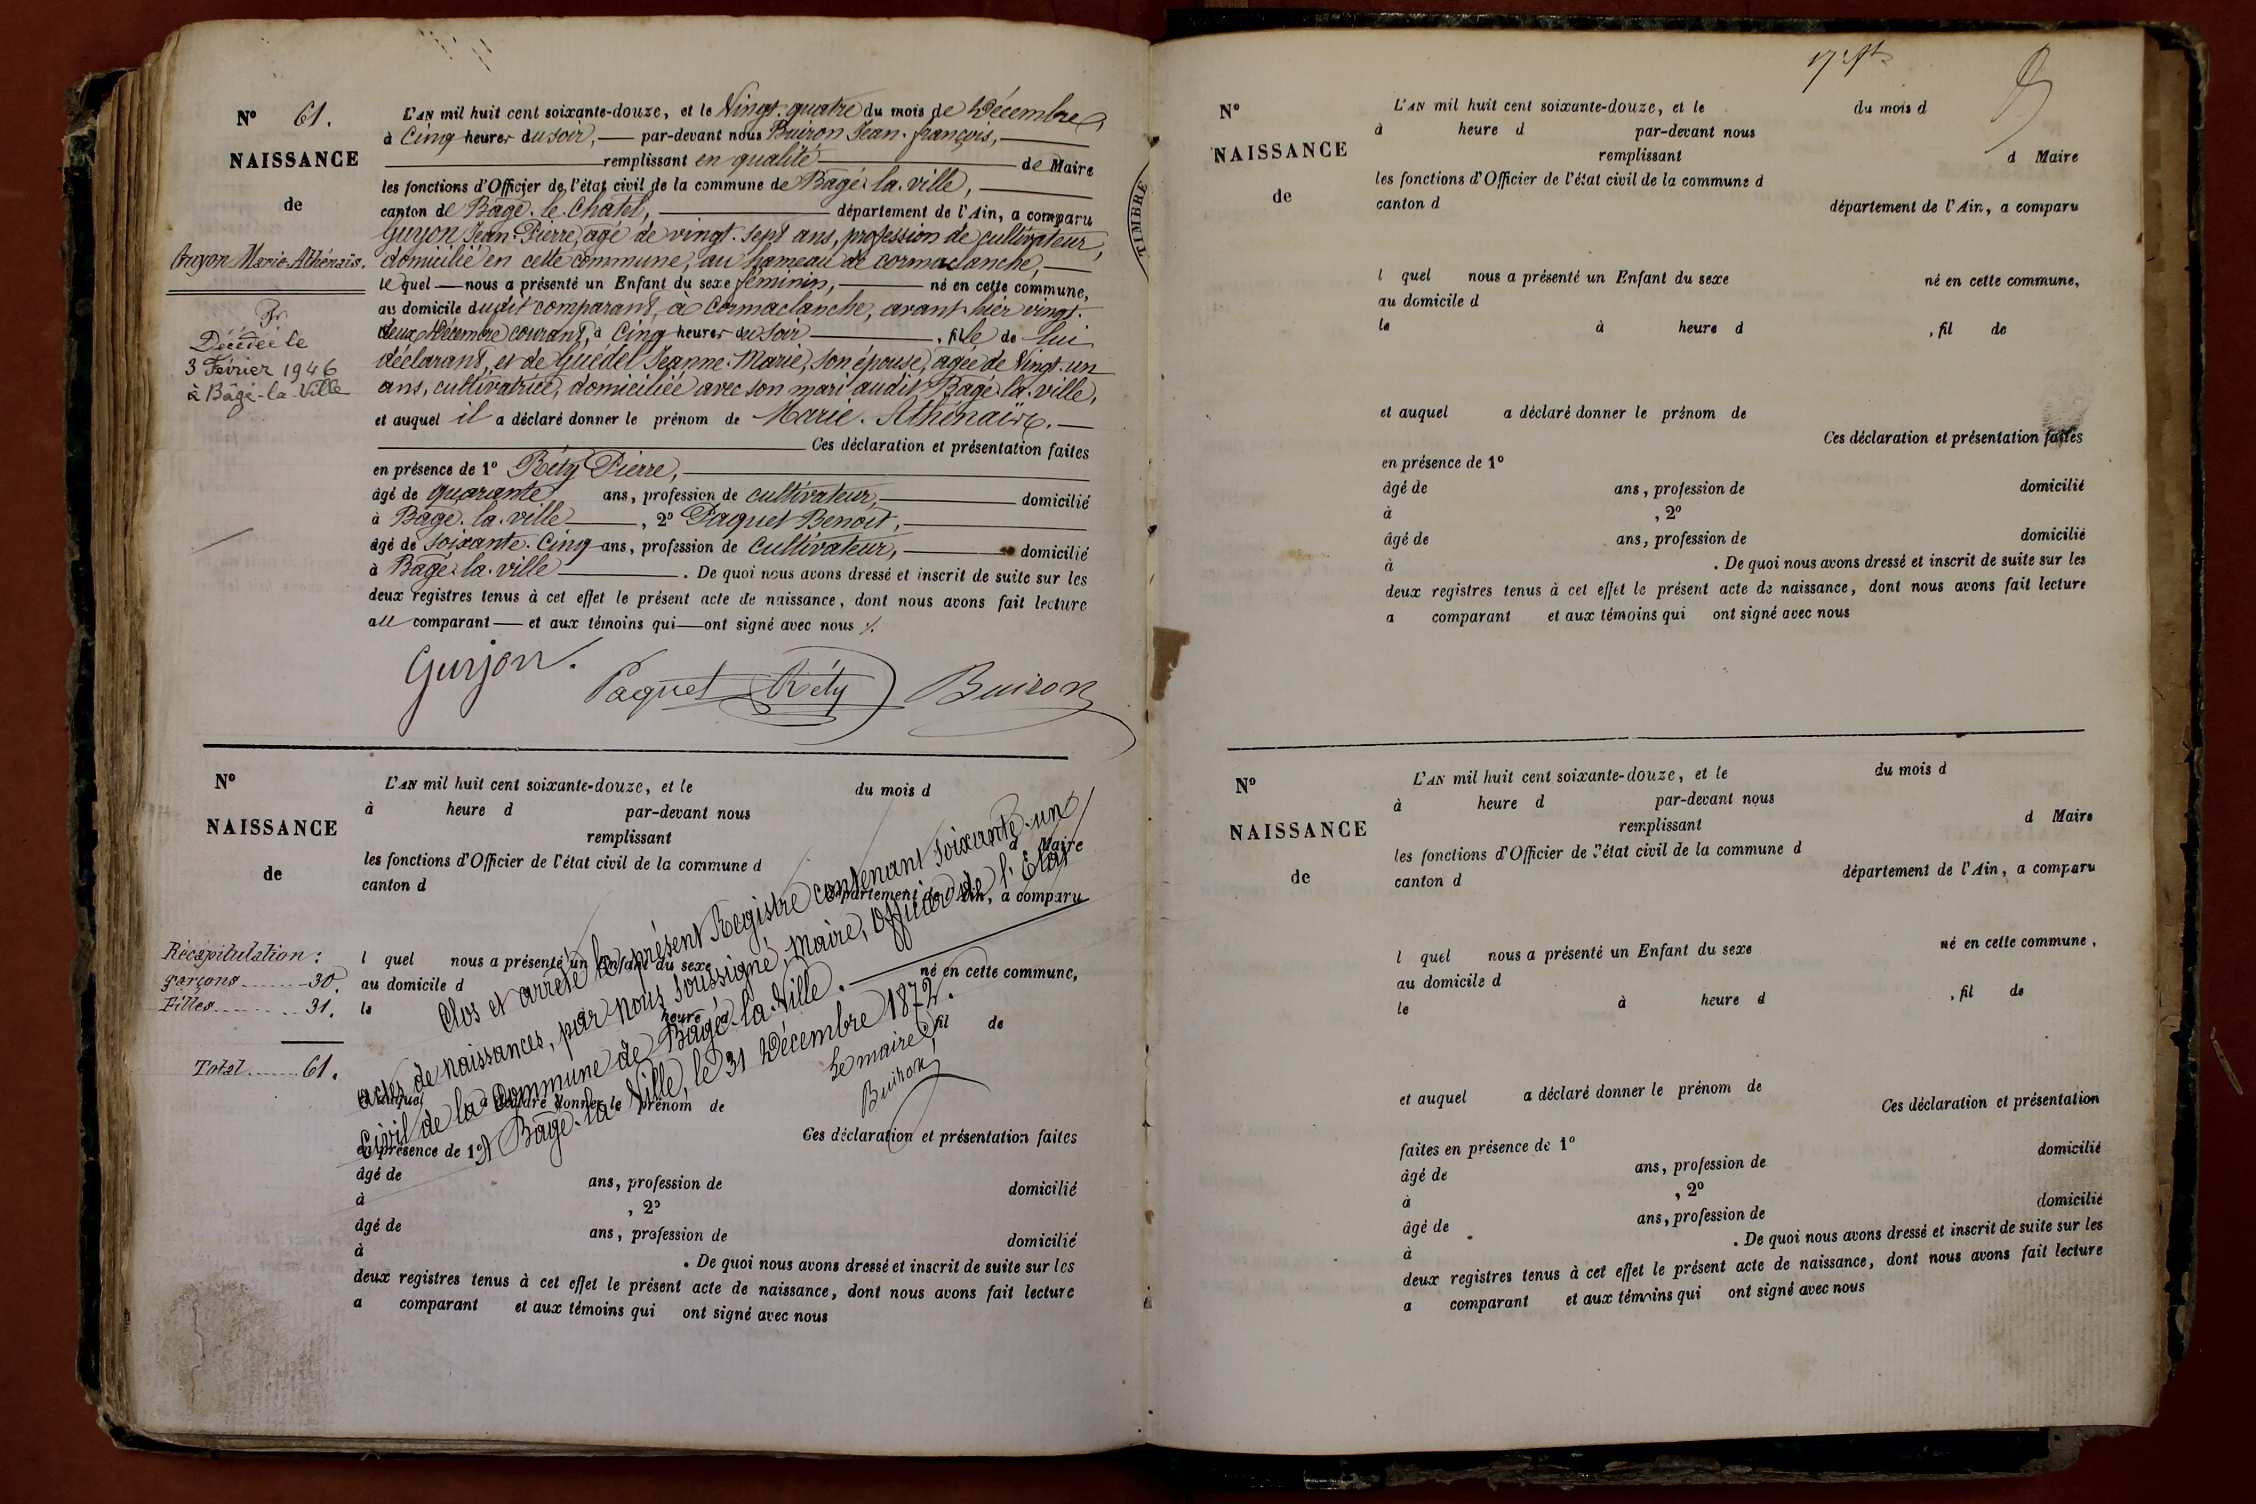 N° 61.
NAISSANCE
de
Guyon Marie-Athénaïs.
Décédée le
3 Février 1946
à Bâgé-la-Ville
L'AN mil huit cent soixante-douze, et le Vingt-quatre du mois de Décembre,
à Cinq heures du soir, par-devant nous Buiron Jean-François,
remplissant en qualité de Maire
les fonctions d'Officier de l'état civil de la commune de Bâgé-la-ville,
canton de Bâgé-le-Châtel, département de l'Ain, a comparu
Guyon Jean-Pierre, agé de vingt-sept ans, profession de cultivateur,
domicilié en cette commune, au hameau de cormaclanche,
lequel nous a présenté un Enfant du sexe féminin, né en cette commune,
au domicile dudit comparant, à Cormaclanche, avant-hier vingt-
deux Décembre courant, à Cinq heures du soir, fille de lui
déclarant, et de Guédel Jeanne-Marie, son épouse, agée de Vingt-un
ans, cultivatrice, domiciliée avec son mari audit Bâgé-la-ville,
et auquel il a déclaré donner le prénom de Marie-Athénaïse.
Ces déclaration et présentation faites
en présence de 1° Réty Pierre,
âgé de quarante ans, profession de cultivateur, domicilié
à Bâgé-la-ville, 2° Paquet Benoit,
âgé de soixante-Cinq ans, profession de Cultivateur, domicilié
à Bâgé-la-ville. De quoi nous avons dressé et inscrit de suite sur les
deux registres tenus à cet effet le présent acte de naissance, dont nous avons fait lecture
au comparant et aux témoins qui ont signé avec nous
Guyon. Paquet Réty Buiron
N°
NAISSANCE
de
Récapitulation :
garçons 30.
Filles 31.
Total 61.
L'AN mil huit cent soixante-douze, et le du mois d
à heure d par-devant nous
remplissant d Maire
les fonctions d'Officier de l'état civil de la commune d
canton d département de l'Ain, a comparu
l quel nous a présenté un Enfant du sexe né en cette commune,
au domicile d
le heure d , fil de
Clos et arrêté le présent Registre contenant Soixante-un
actes de naissances, par nous soussigné, Maire, officier de l'État
Civil de la Commune de Bâgé-la-Ville.
A Bâgé-la-Ville, le 31 Décembre 1872.
Le maire,
Buiron
et auquel a déclaré donner le prénom de
Ces déclaration et présentation faites
en présence de 1°
âgé de ans, profession de domicilié
à , 2°
âgé de ans, profession de domicilié
à . De quoi nous avons dressé et inscrit de suite sur les
deux registres tenus à cet effet le présent acte de naissance, dont nous avons fait lecture
a comparant et aux témoins qui ont signé avec nous
TIMBRE
N°
NAISSANCE
de
L'AN mil huit cent soixante-douze, et le du mois d
à heure d par-devant nous
remplissant d Maire
les fonctions d'Officier de l'état civil de la commune d
canton d département de l'Ain, a comparu
l quel nous a présenté un Enfant du sexe né en cette commune,
au domicile d
le à heure d , fil de
et auquel a déclaré donner le prénom de
Ces déclaration et présentation faites
en présence de 1°
âgé de ans, profession de domicilié
à , 2°
âgé de ans, profession de domicilié
à . De quoi nous avons dressé et inscrit de suite sur les
deux registres tenus à cet effet le présent acte de naissance, dont nous avons fait lecture
a comparant et aux témoins qui ont signé avec nous
N°
NAISSANCE
de
L'AN mil huit cent soixante-douze, et le du mois d
à heure d par-devant nous
remplissant d Maire
les fonctions d'Officier de l'état civil de la commune d
canton d département de l'Ain, a comparu
l quel nous a présenté un Enfant du sexe né en cette commune,
au domicile d
le à heure d , fil de
et auquel a déclaré donner le prénom de
Ces déclaration et présentation
faites en présence de 1°
âgé de ans, profession de domicilié
à , 2°
âgé de ans, profession de domicilié
à . De quoi nous avons dressé et inscrit de suite sur les
deux registres tenus à cet effet le présent acte de naissance, dont nous avons fait lecture
a comparant et aux témoins qui ont signé avec nous